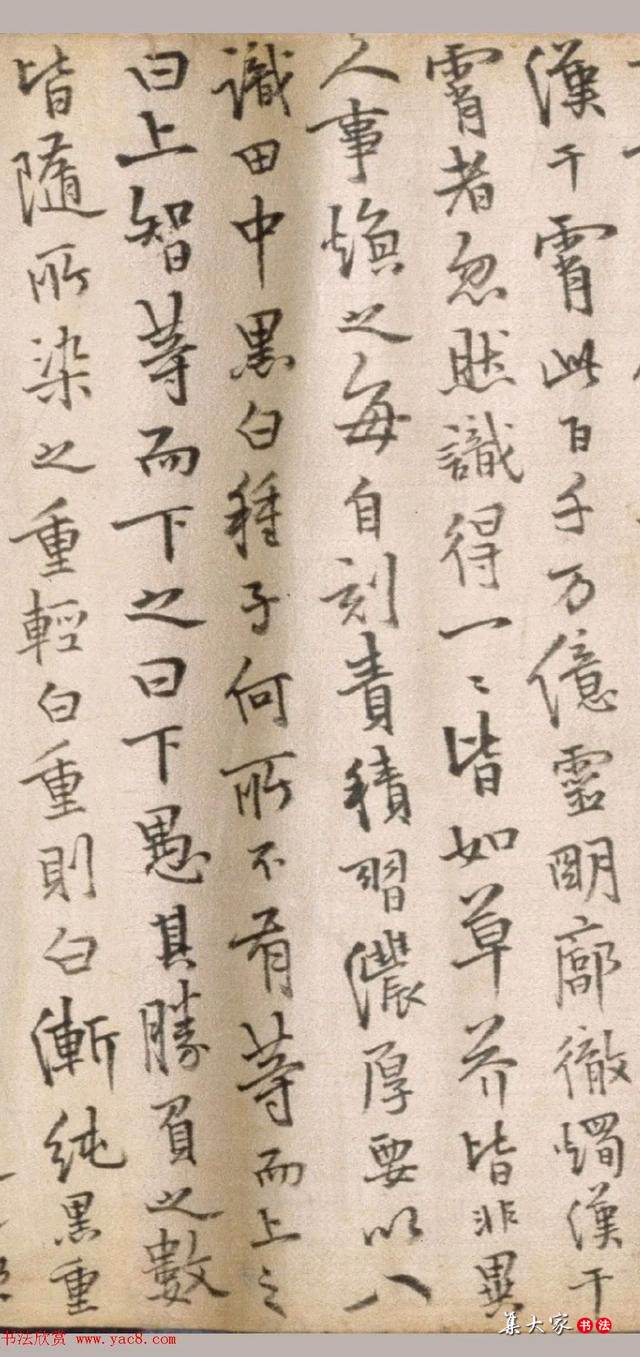 漢干霄此百千万億靈明廓徹燭漢干
霄者忽然識得一〻皆如草芥皆非異
人事煩之每自刻責積習濃厚要以八
識田中黒白種子何所不有等而上之
曰上智等而下之曰下愚其勝負之數
皆隨所染之重輕白重則白漸純黒重
集大家書法
书法欣赏 www.yac8.com